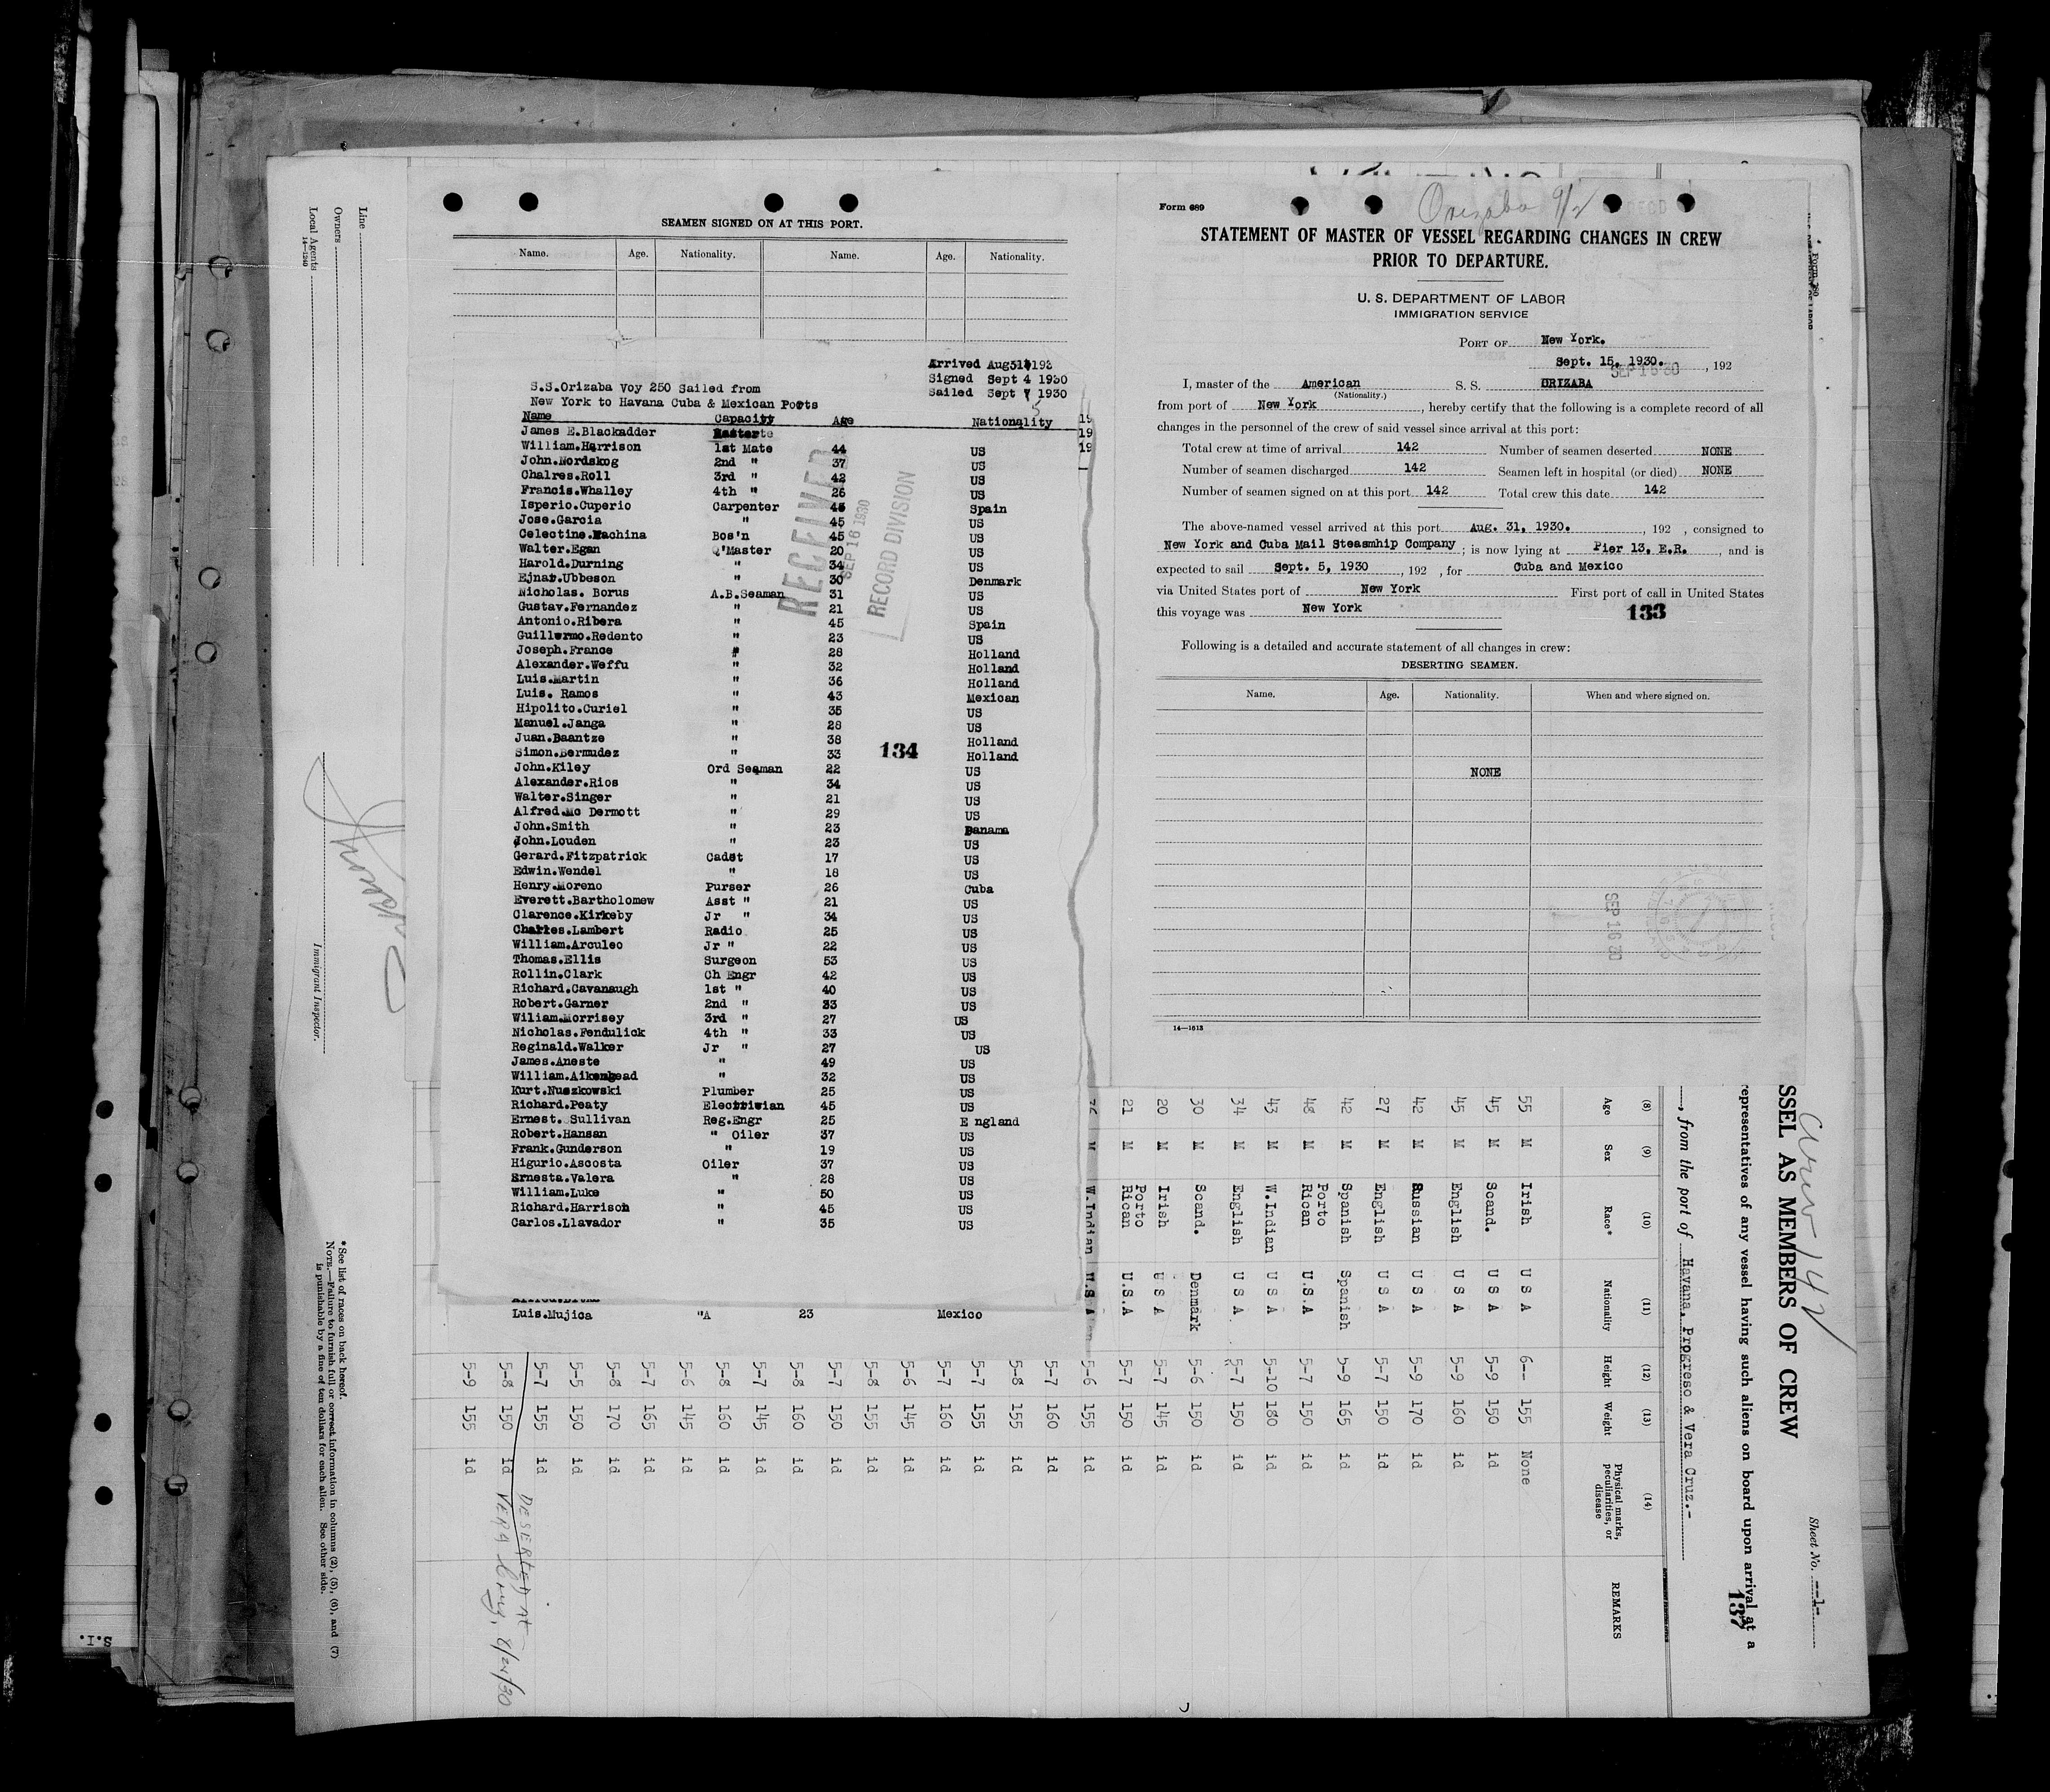 SEAMEN SIGNED ON AT THIS PORT.
Name. Age. Nationality. Name. Age. Nationality.
Arrived Aug31 193
Signed Sept 4 1930
Sailed Sept 1930
5
S.S.Orizaba Voy 250 Sailed from
New York to Havana Cuba & Mexican Ports
Name Capacity Age Nationality
James E.Blackadder Master
William.Harrison 1st Mate 44 US
John.Nordskog 2nd " 37 US
Chalres.Roll 3rd " 42 US
Francis.Whalley 4th " 26 US
Isperio.Cuperio Carpenter 45 Spain
Jose.Garcia " 45 US
Celectine.Machina Bos'n 45 US
Walter.Egan Q'Master 20 US
Harold.Durning " 34 US
Ejnar.Ubbeson " 30 Denmark
Nicholas. Borus A.B.Seaman 31 US
Gustav.Fernandez " 21 US
Antonio.Ribera " 45 Spain
Guillermo.Redento " 23 US
Joseph.France " 28 Holland
Alexander.Weffu " 32 Holland
Luis.Martin " 36 Holland
Luis. Ramos " 43 Mexican
Hipolito.Curiel " 35 US
Manuel.Janga " 28 US
Juan.Baantze " 38 Holland
Simon.Bermudez " 33 Holland
John.Kiley Ord Seaman 22 US
Alexander.Rios " 34 US
Walter.Singer " 21 US
Alfred.Mc Dermott " 29 US
John.Smith " 23 Panama
John.Louden " 23 US
Gerard.Fitzpatrick Cadet 17 US
Edwin.Wendel " 18 US
Henry.Moreno Purser 26 Cuba
Everett.Bartholomew Asst " 21 US
Clarence.Kirkeby Jr " 34 US
Charles.Lambert Radio 25 US
William.Arculeo Jr " 22 US
Thomas.Ellis Surgeon 53 US
Rollin.Clark Ch Engr 42 US
Richard.Cavanaugh 1st " 40 US
Robert.Garner 2nd " 33 US
Wiliam.Morrisey 3rd " 27 US
Nicholas.Fendulick 4th " 33 US
Reginald.Walker Jr " 27 US
James.Aneste " 49 US
William.Aikenhead " 32 US
Kurt.Nuszkowski Plumber 25 US
Richard.Peaty Electrivian 45 US
Ernest. Sullivan Reg.Engr 25 E ngland
Robert.Hansan " Oiler 37 US
Frank.Gunderson " 19 US
Higurio.Ascosta Oiler 37 US
Ernesta.Valera " 28 US
William.Luke " 50 US
Richard.Harrison " 45 US
Carlos.Llavador " 35 US
Luis.Mujica "A 23 Mexico
134
RECEIVED
SEP 16 1930
RECORD DIVISION
19
19
19
Form 689
Orizaba 9/2
STATEMENT OF MASTER OF VESSEL REGARDING CHANGES IN CREW
PRIOR TO DEPARTURE.
U. S. DEPARTMENT OF LABOR
IMMIGRATION SERVICE
PORT OF New York.
Sept. 15, 1930. , 192
SEP 16 30
I, master of the American S. S. ORIZABA
(Nationality.)
from port of New York , hereby certify that the following is a complete record of all
changes in the personnel of the crew of said vessel since arrival at this port:
Total crew at time of arrival 142 Number of seamen deserted NONE
Number of seamen discharged 142 Seamen left in hospital (or died) NONE
Number of seamen signed on at this port 142 Total crew this date 142
The above-named vessel arrived at this port Aug. 31, 1930. , 192 , consigned to
New York and Cuba Mail Steasmhip Company ; is now lying at Pier 13, E.R. , and is
expected to sail Sept. 5, 1930 , 192 , for Cuba and Mexico
via United States port of New York First port of call in United States
this voyage was New York
133
Following is a detailed and accurate statement of all changes in crew:
DESERTING SEAMEN.
Name. Age. Nationality. When and where signed on.
NONE
SEP 16 30
14—1613
Line
Owners
Local Agents
14—1240
Immigrant Inspector.
* See list of races on back hereof.
NOTE.—Failure to furnish full or correct information in columns (2), (5), (6), and (7)
is punishable by a fine of ten dollars for each alien. See other side.
Sheet No. --1-
Crew 142
SSEL AS MEMBERS OF CREW
epresentatives of any vessel having such aliens on board upon arrival at a
137
, from the port of Havana, Progreso & Vera Cruz.-
(8) (9) (10) (11) (12) (13) (14)
Age Sex Race* Nationality Height Weight Physical marks, peculiarities, or disease REMARKS
55 M Irish U S A 6-- 155 None
45 M Scand. U S A 5-9 150 id
45 M English U S A 5-9 160 id
42 M Russian U S A 5-9 170 id
27 M English U S A 5-7 150 id
42 M Spanish Spanish 5-9 165 id
48 M Porto Rican U.S.A 5-7 150 id
43 M W.Indian U S A 5-10 180 id
34 M English U S A 5-7 150 id
30 M Scand. Denmark 5-6 150 id
20 M Irish U S A 5-7 145 id
21 M Porto Rican U.S.A 5-7 150 id
M W.Indian U.S.A 5-6 155 id
5-7 160 id
5-8 155 id
5-7 155 id
5-7 160 id
5-6 145 id
5-8 155 id
5-7 150 id
5-8 160 id
5-7 145 id
5-8 160 id
5-6 145 id
5-7 165 id
5-8 170 id
5-5 150 id
5-7 155 id
5-8 150 id
5-9 155 id
DESERTED AT
VERA Cruz, 8/21/30
S.I.